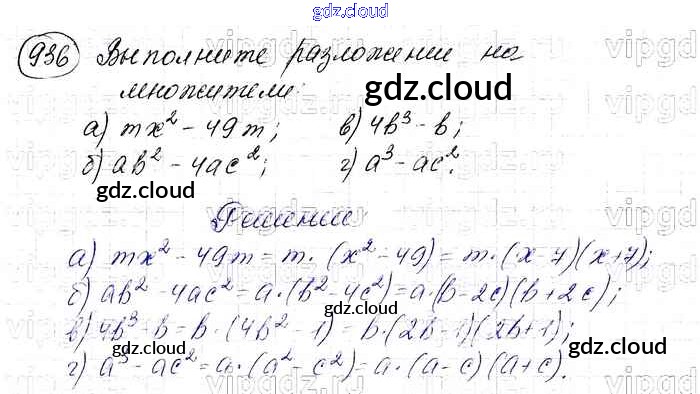 gdz.cloud
936 Выполните разложении на
множители:
gdz.cloud
а) mx² - 49m; в) 4b³ - b;
б) ab² - 4ac²; г) a³ - ac².
gdz.cloud gdz.cloud
Решение
gdz.cloud
а) mx² - 49m = m · (x² - 49) = m · (x - 7)(x + 7);
gdz.cloud
б) ab² - 4ac² = a · (b² - 4c²) = a · (b - 2c)(b + 2c);
в) 4b³ - b = b · (4b² - 1) = b · (2b - 1)(2b + 1);
gdz.cloud
г) a³ - ac² = a · (a² - c²) = a · (a - c)(a + c).
gdz.cloud